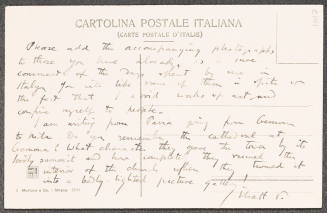 CARTOLINA POSTALE ITALIANA
(CARTE POSTALE D'ITALIE)
Please add the accompanying photographs
to those you have already, as a
of the days spent by me in
Italy. You take some of them in spite of
the fact that I avoid works of art, and
confine myself to people.
I am writing from Parma going from Cremona
to Do you remember the cathedral at
Cremona? What character they gave the town by its
lovely and how completely they ruined the
interior of the church when they turned it
into a badly lighted picture gallery!